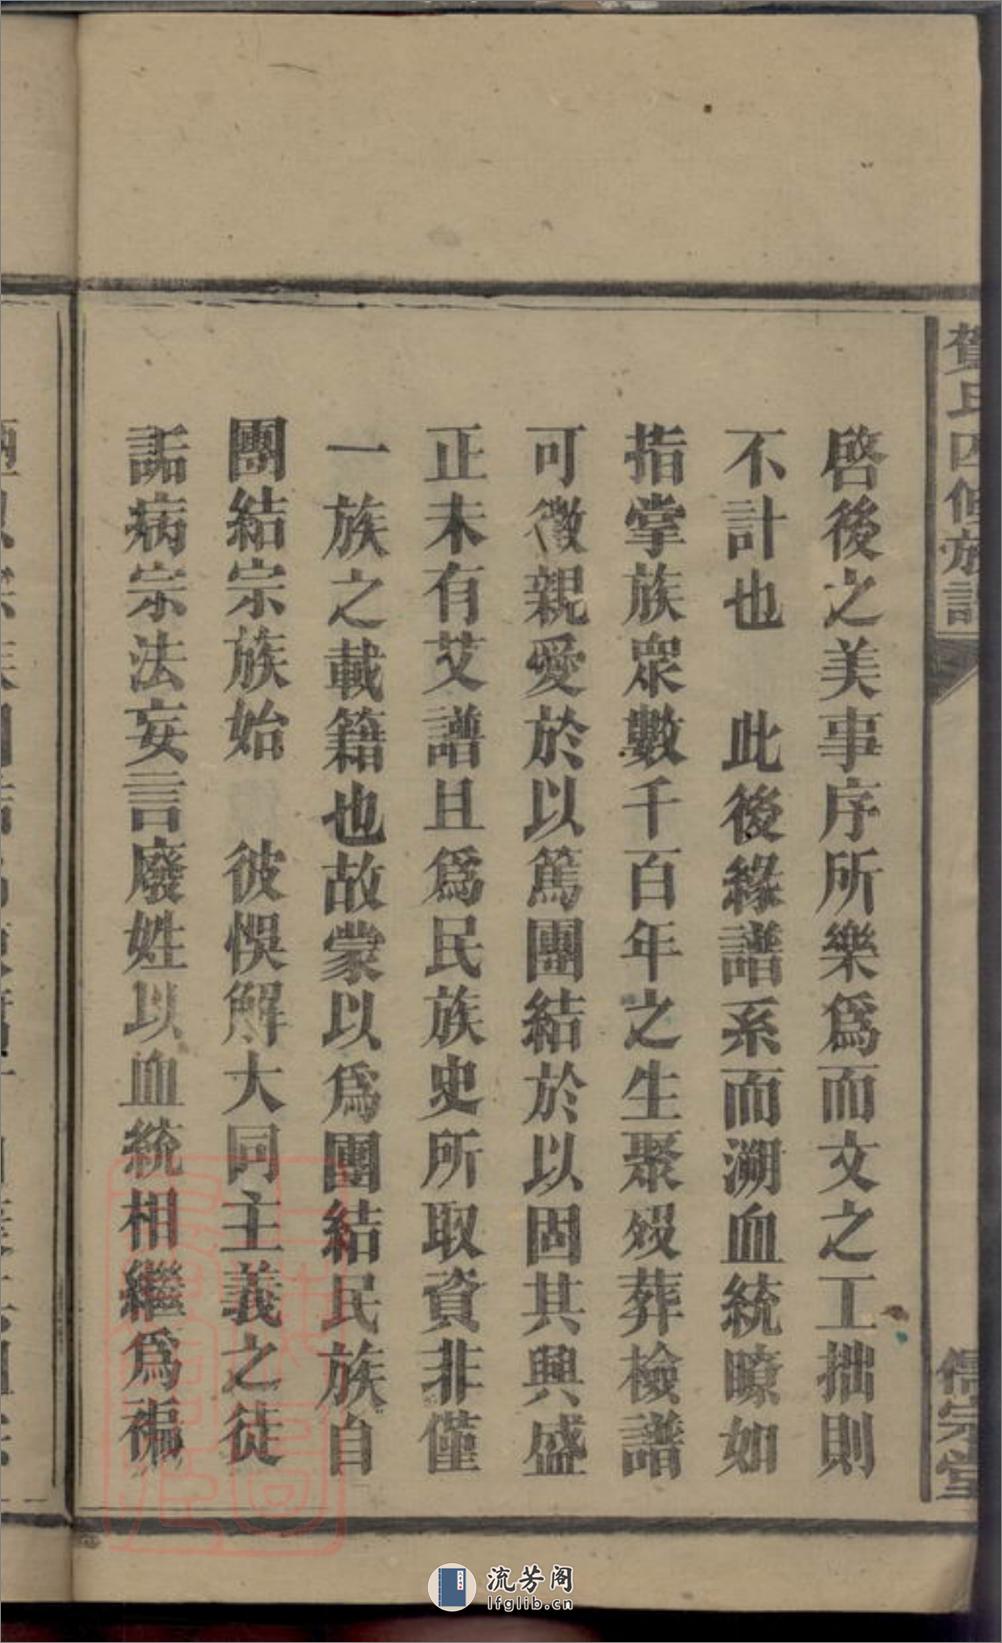 賀氏四修族譜
儒宗堂
啓後之美事序所樂爲而文之工拙則
不計也　此後緣譜系而溯血統瞭如
指掌族眾數千百年之生聚歿葬檢譜
可徵親愛於以篤團結於以固其興盛
正未有艾譜且爲民族史所取資非僅
一族之載籍也故蒙以爲團結民族自
團結宗族始　彼悞解大同主義之徒
詬病宗法妄言廢姓以血統相繼爲褊
流芳阁
lfglib.cn